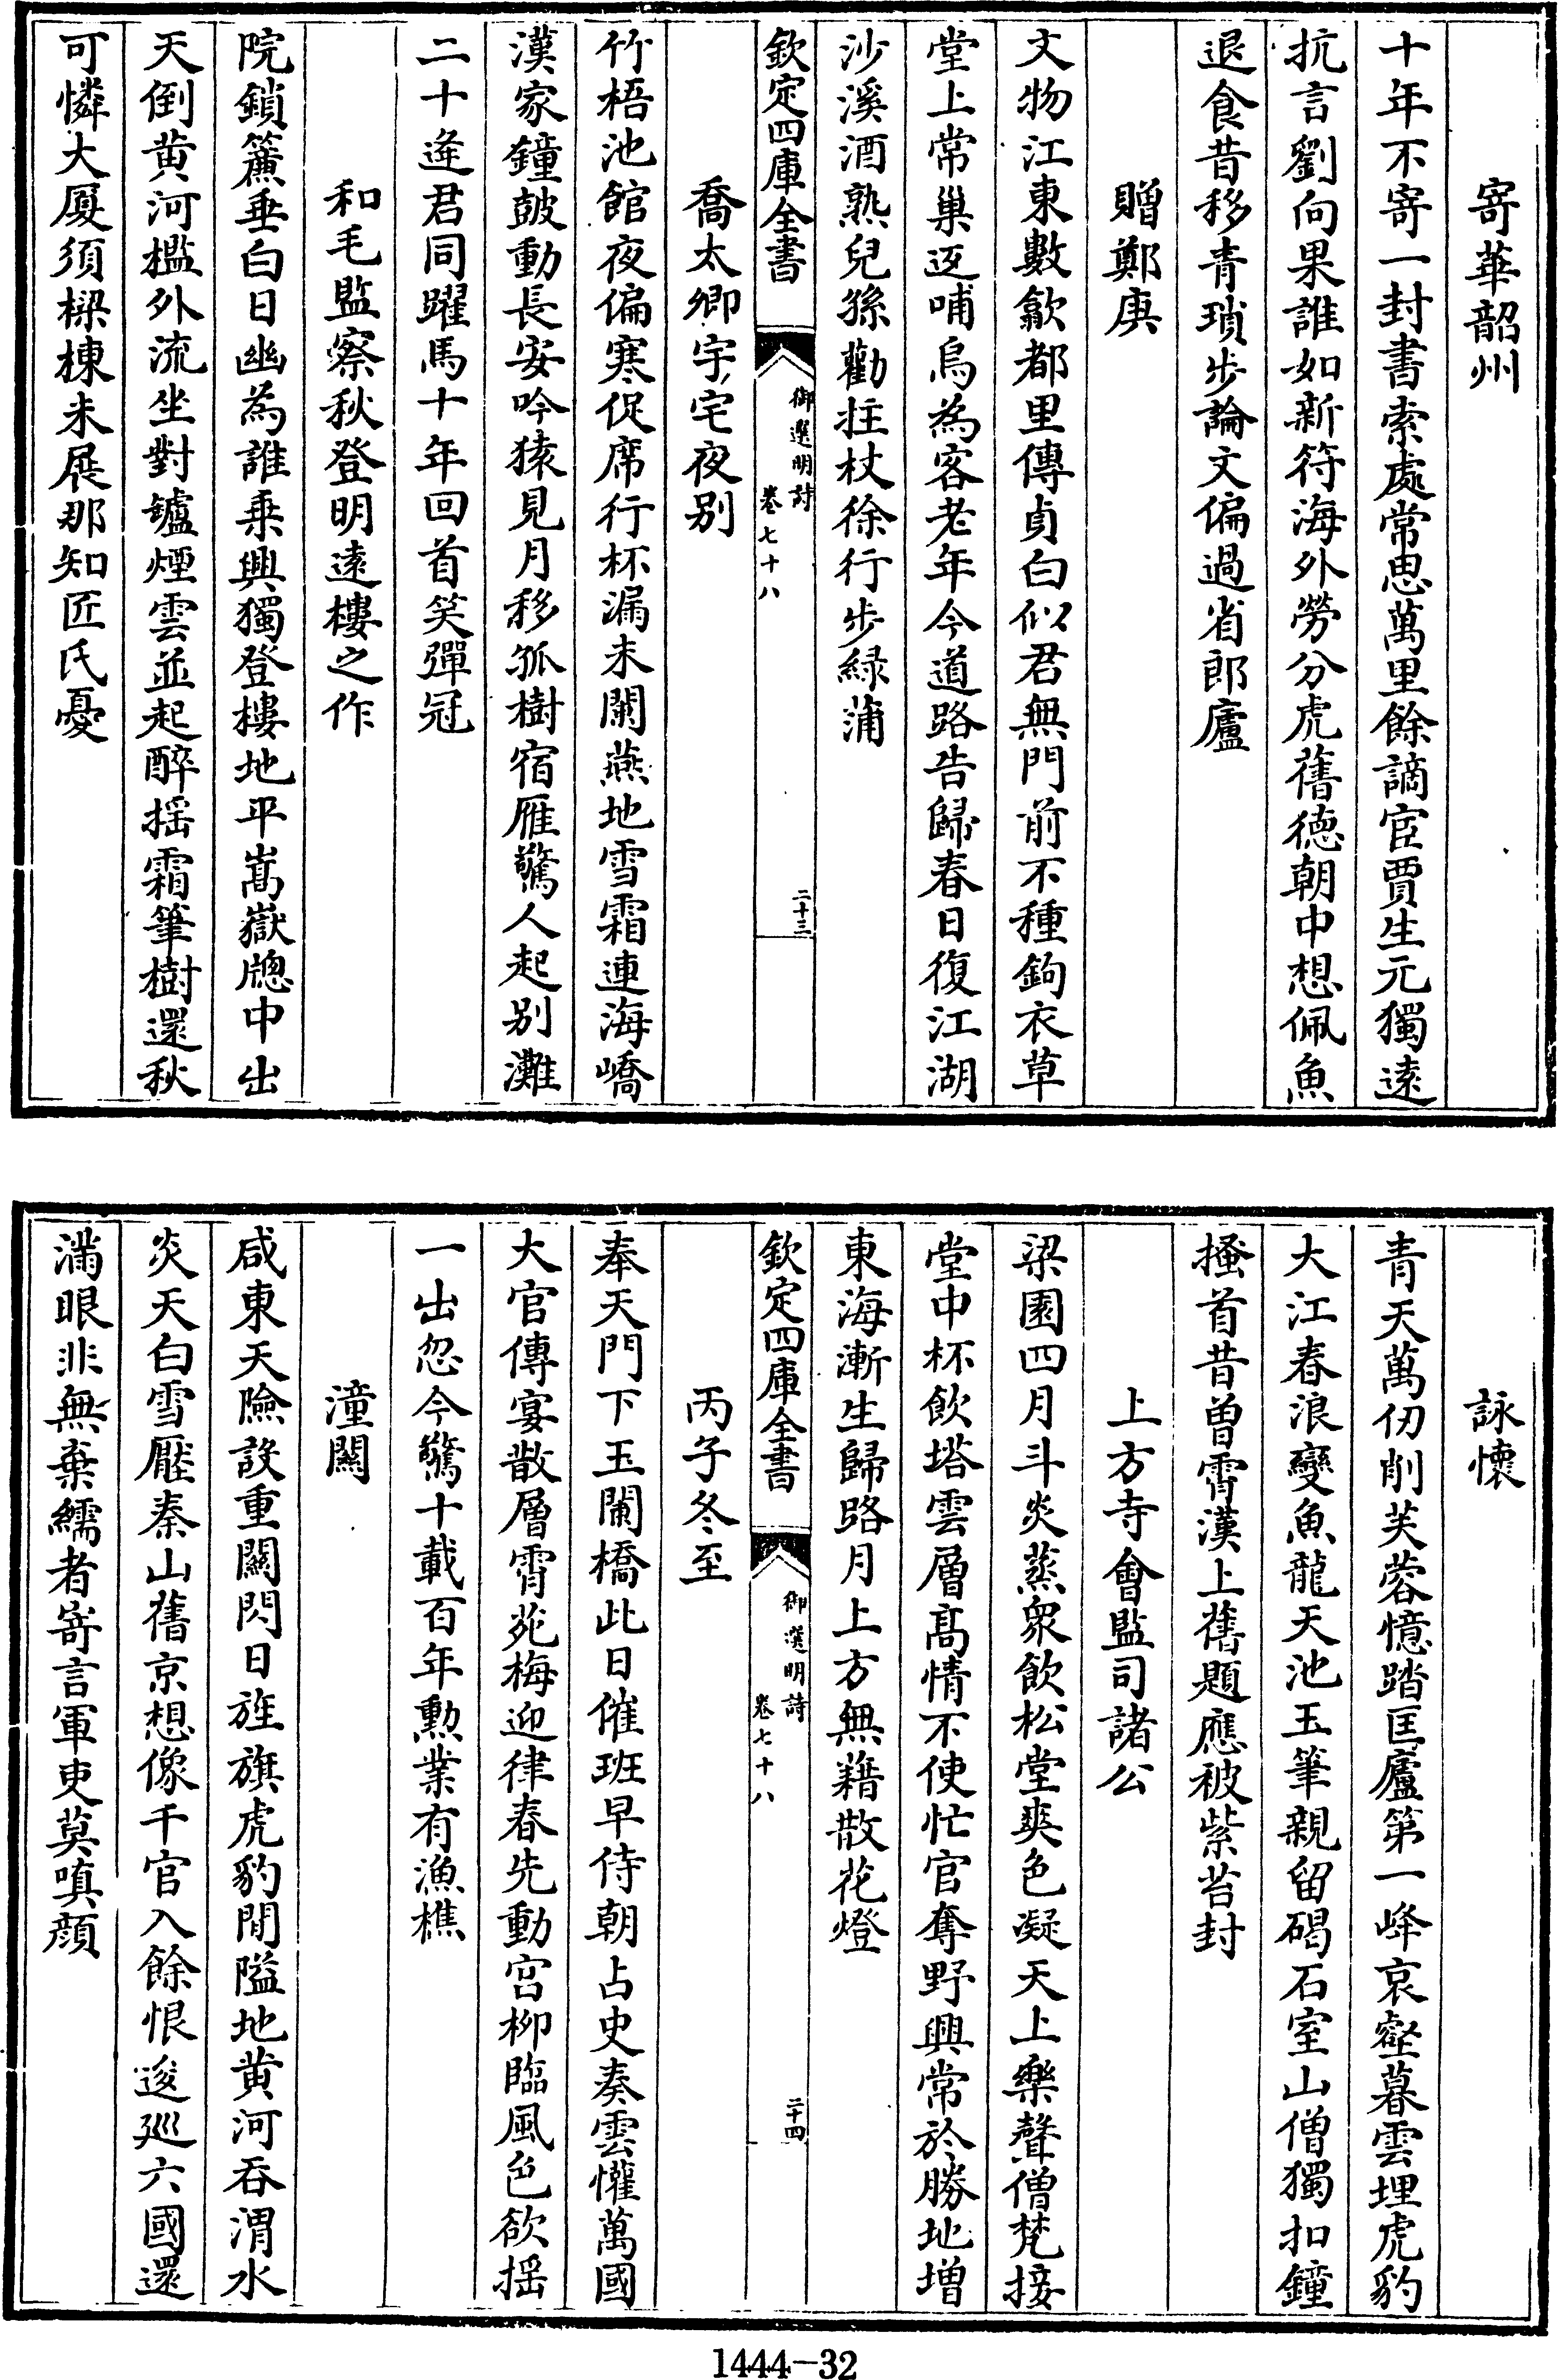 寄華韶州
十年不寄一封書索處常思萬里餘謫宦賈生元獨遠
抗言劉向果誰如新符海外勞分虎舊德朝中想佩魚
退食昔移青瑣步論文偏過省郎廬
贈鄭庚
文物江東數歙都里傳貞白似君無門前不種鉤衣草
堂上常巢返哺烏為客老年今道路告歸春日復江湖
沙溪酒熟兒孫勸拄杖徐行步緑蒲
欽定四庫全書
御選明詩
卷七十八
二十三
喬太卿宇宅夜别
竹梧池館夜偏寒促席行杯漏未闌燕地雪霜連海嶠
漢家鐘鼓動長安吟猿見月移孤樹宿雁驚人起别灘
二十逢君同躍馬十年回首笑彈冠
和毛監察秋登明遠樓之作
院鎖簾垂白日幽為誰乗興獨登樓地平嵩嶽牕中出
天倒黄河檻外流坐對鑪煙雲並起醉揺霜筆樹還秋
可憐大厦須樑棟未展那知匠氏憂
詠懷
青天萬仞削芙蓉憶踏匡廬第一峰哀壑暮雲埋虎豹
大江春浪變魚龍天池玉筆親留碣石室山僧獨扣鐘
搔首昔曾霄漢上舊題應被紫苔封
上方寺會監司諸公
梁園四月斗炎蒸衆飲松堂爽色凝天上樂聲僧梵接
堂中杯飲塔雲層髙情不使忙官奪野興常於勝地增
東海漸生歸路月上方無藉散花燈
欽定四庫全書
御選明詩
卷七十八
二十四
丙子冬至
奉天門下玉闌橋此日催班早侍朝占史奏雲懽萬國
大官傳宴散層霄苑梅迎律春先動宫柳臨風色欲揺
一出忽今驚十載百年勲業有漁樵
潼闗
咸東天險設重闗閃日旌旗虎豹閒隘地黄河呑渭水
炎天白雪壓秦山舊京想像千官入餘恨逡巡六國還
滿眼非無棄繻者寄言軍吏莫嗔顔
1444-32